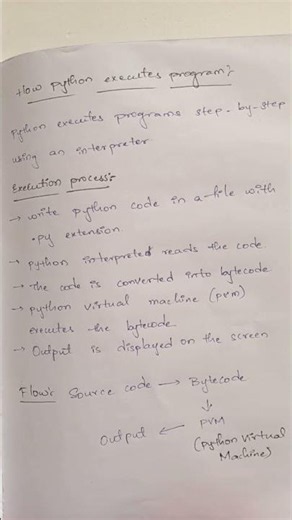 How python executes program:-
python executes programs step-by-step
using an interpreter
Execution process:-
→ write python code in a file with
.py extension.
→ python interpreted reads the code
→ the code is converted into bytecode
→ python virtual machine (pvm)
executes the bytecode
→ Output is displayed on the screen
Flow: Source code → Bytecode
↓
Output ← PVM
(python virtual
Machine)